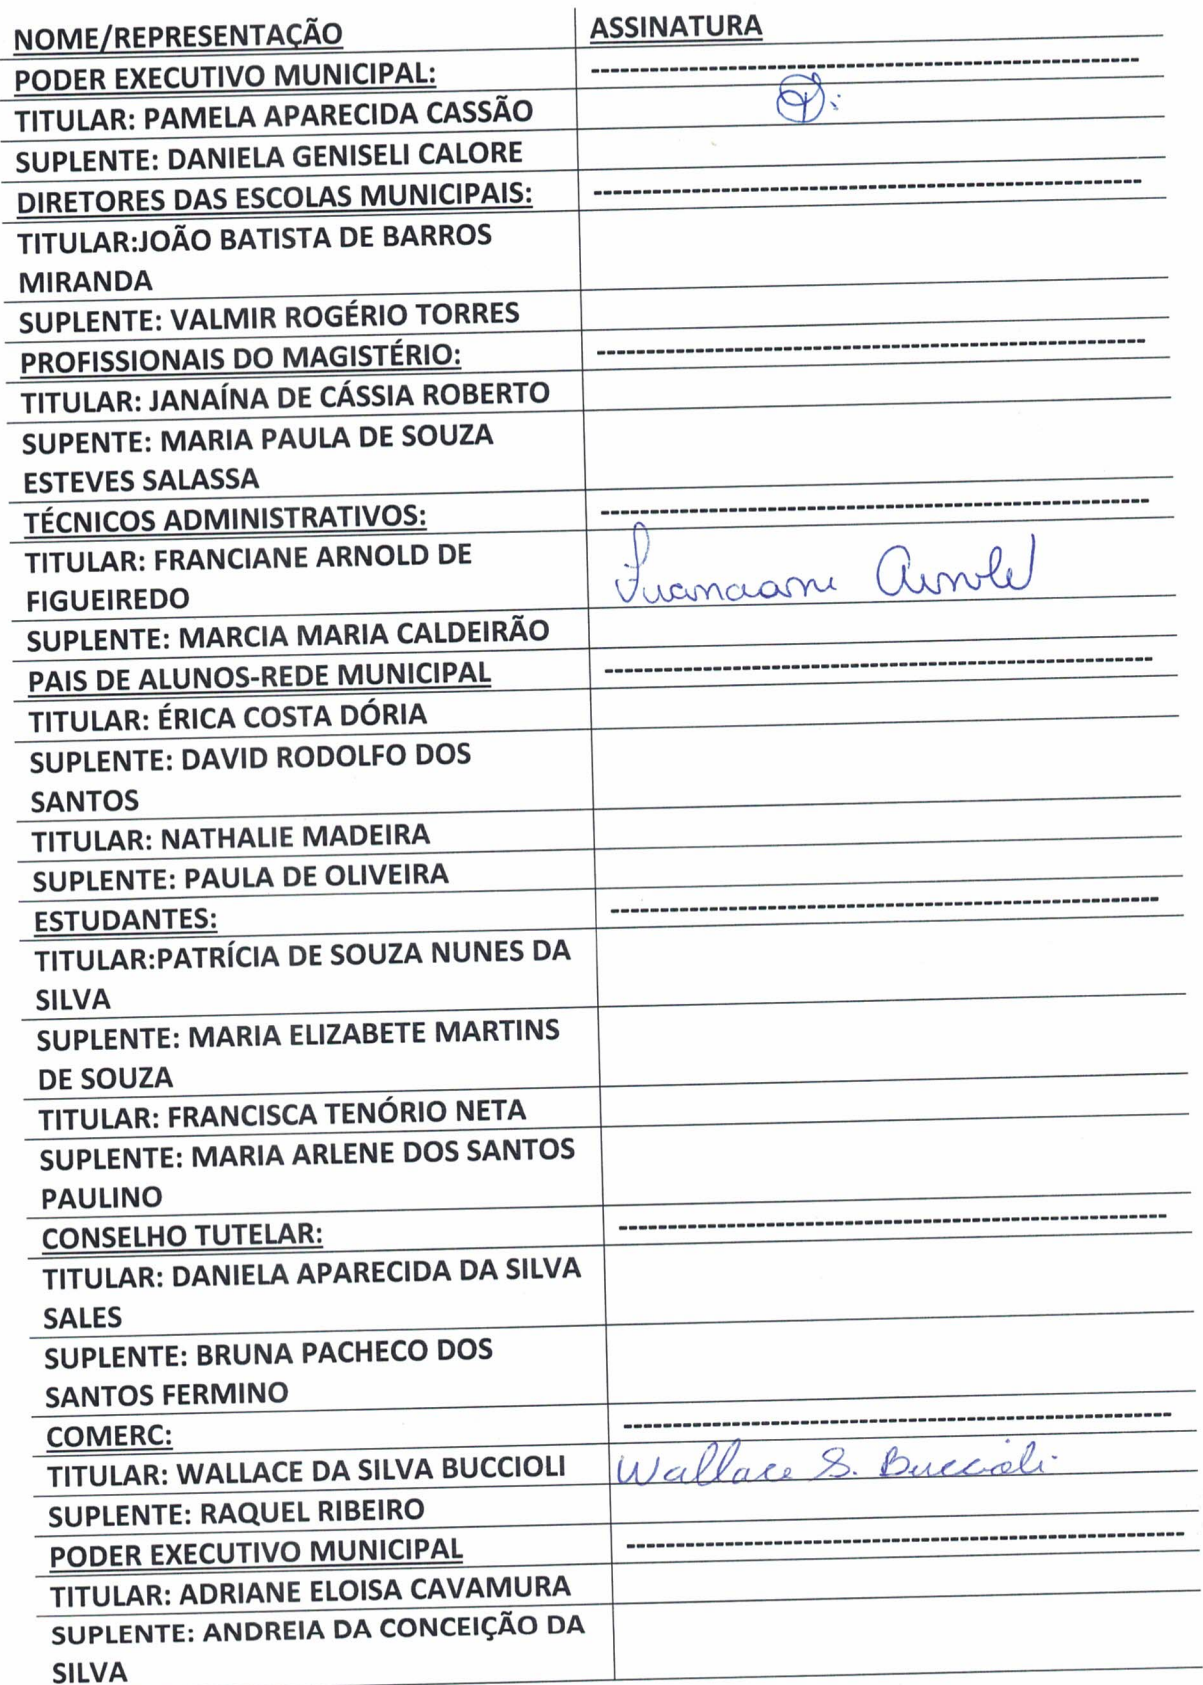 NOME/REPRESENTAÇÃO ASSINATURA
PODER EXECUTIVO MUNICIPAL: --------------------------------------------------------
TITULAR: PAMELA APARECIDA CASSÃO
SUPLENTE: DANIELA GENISELI CALORE
DIRETORES DAS ESCOLAS MUNICIPAIS: --------------------------------------------------------
TITULAR:JOÃO BATISTA DE BARROS
MIRANDA
SUPLENTE: VALMIR ROGÉRIO TORRES
PROFISSIONAIS DO MAGISTÉRIO: --------------------------------------------------------
TITULAR: JANAÍNA DE CÁSSIA ROBERTO
SUPENTE: MARIA PAULA DE SOUZA
ESTEVES SALASSA
TÉCNICOS ADMINISTRATIVOS: --------------------------------------------------------
TITULAR: FRANCIANE ARNOLD DE
FIGUEIREDO Franciane Arnold
SUPLENTE: MARCIA MARIA CALDEIRÃO
PAIS DE ALUNOS-REDE MUNICIPAL --------------------------------------------------------
TITULAR: ÉRICA COSTA DÓRIA
SUPLENTE: DAVID RODOLFO DOS
SANTOS
TITULAR: NATHALIE MADEIRA
SUPLENTE: PAULA DE OLIVEIRA
ESTUDANTES: --------------------------------------------------------
TITULAR:PATRÍCIA DE SOUZA NUNES DA
SILVA
SUPLENTE: MARIA ELIZABETE MARTINS
DE SOUZA
TITULAR: FRANCISCA TENÓRIO NETA
SUPLENTE: MARIA ARLENE DOS SANTOS
PAULINO
CONSELHO TUTELAR: --------------------------------------------------------
TITULAR: DANIELA APARECIDA DA SILVA
SALES
SUPLENTE: BRUNA PACHECO DOS
SANTOS FERMINO
COMERC: --------------------------------------------------------
TITULAR: WALLACE DA SILVA BUCCIOLI Wallace S. Buccioli
SUPLENTE: RAQUEL RIBEIRO
PODER EXECUTIVO MUNICIPAL --------------------------------------------------------
TITULAR: ADRIANE ELOISA CAVAMURA
SUPLENTE: ANDREIA DA CONCEIÇÃO DA
SILVA